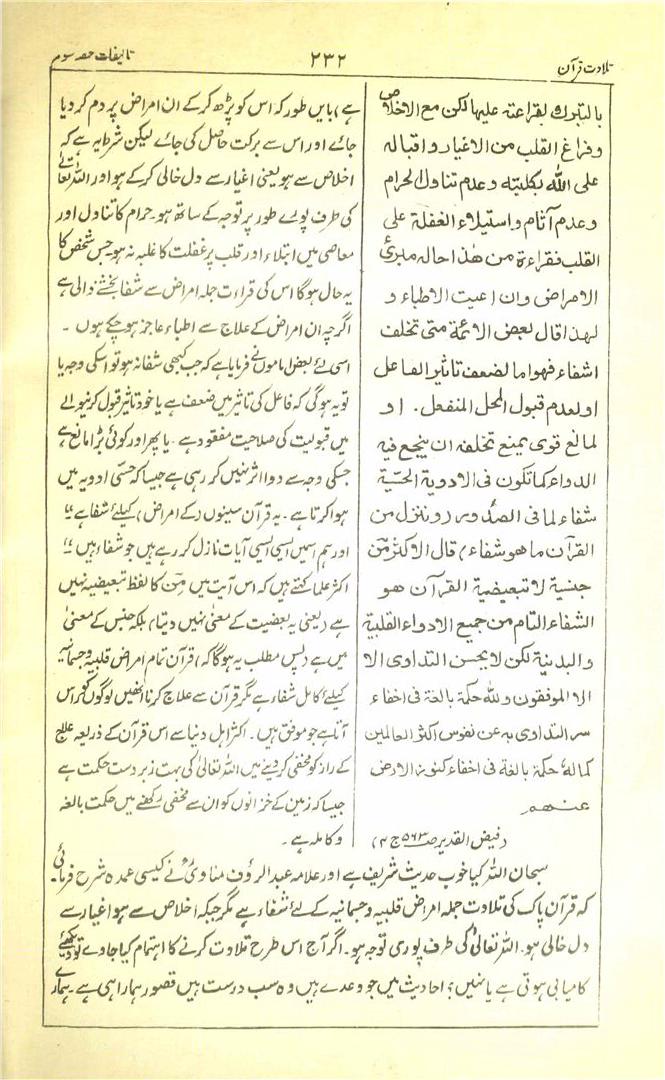 تلاوت قرآن
۲۳۲
تالیفات حصہ سوم
بالتبرك بقراءته عليها لكن مع الاخلاص
وفراغ القلب من الاغيار واقباله
على الله بكليته وعدم تناول الحرام
وعدم آثام واستيلاء الغفلة على
القلب فقراءة من هذا حاله مبرئ
الامراض وان اعيت الاطباء و
لهذا قال بعض الائمة متى تخلف
اشفاء فهو اما لضعف تاثير الفاعل
او لعدم قبول المحل المنفعل . او
لمانع قوى يمنع تخلفه ان ينجع فيه
الدواء كما تكون فى الادوية الحسّية
شفاء لما فى الصدور رو ننزل من
القرآن ما هو شفاء) قال الاكثر مِن
جنسية لا تبعيضية القرآن هو
الشفاء التام من جميع الادواء القلبية
والبدنية لكن لا يحسن التداوى الا
الا الموفقون ولله حكمة بالغة فى اخفاء
سر التداوى به عن نفوس اكثر العالمين
كما له حكمة بالغة فى اخفاء كنوز الارض
عنهم
(فيض القدير ص۵۶۳ ج۴)
ہے) بایں طور کہ اس کو پڑھ کر کے ان امراض پر دم کر دیا
جائے اور اس سے برکت حاصل کی جائے لیکن شرط یہ ہے کہ
اخلاص سے ہو یعنی اغیار سے دل خالی کر کے ہو اور اللہ تعالیٰ
کی طرف پورے طور پر توجہ کے ساتھ ہو۔ حرام کا تناول اور
معاصی میں ابتلاء اور قلب پر غفلت کا غلبہ نہ ہو۔ جس شخص کا
یہ حال ہو گا اس کی قراءت جملہ امراض سے شفا بخشنے والی ہے
اگرچہ ان امراض کے علاج سے اطباء عاجز ہو چکے ہوں ۔
اسی لئے بعض اماموں نے فرمایا ہے کہ جب کبھی شفا نہ ہو تو اسکی وجہ یا
تو یہ ہو گی کہ فاعل کی تاثیر میں ضعف ہے یا خود تاثیر قبول کرنیوالے
میں قبولیت کی صلاحیت مفقود ہے ۔ یا پھر اور کوئی بڑا مانع ہے
جسکی وجہ سے دوا اثر نہیں کر رہی ہے جیسا کہ حسّی ادویہ میں
ہوا کرتا ہے ۔ یہ قرآن سینوں (کے امراض) کیلئے شفا ہے
اور ہم اسمیں ایسی ایسی آیات نازل کر رہے ہیں جو شفاء ہیں
اکثر علماء کہتے ہیں کہ اس آیت میں مِنْ کا لفظ تبعیضیہ نہیں
ہے (یعنی یہ بعضیت کے معنیٰ نہیں دیتا) بلکہ جنس کے معنیٰ
میں ہے (پس مطلب یہ ہو گا کہ) قرآن تمام امراض قلبیہ وجسمانیہ
کیلئے کامل شفاء ہے مگر قرآن سے علاج کرنا انھیں لوگوں کو راس
آتا ہے جو موفق ہیں ۔ اکثر اہل دنیا سے اس قرآن کے ذریعہ علاج
کے راز کو مخفی کر دینے میں اللہ تعالیٰ کی بہت زبردست حکمت ہے
جیسا کہ زمین کے خزانوں کو ان سے مخفی رکھنے میں حکمت بالغہ
وکاملہ ہے ۔
سبحان اللہ کیا خوب حدیث شریف ہے اور علامہ عبدالرؤف مناویؒ نے کیسی عمدہ شرح فرمائی
کہ قرآن پاک کی تلاوت جملہ امراض قلبیہ وجسمانیہ کے لئے شفاء ہے مگر جبکہ اخلاص سے ہو اغیار سے
دل خالی ہو۔ اللہ تعالیٰ کی طرف پوری توجہ ہو۔ اگر آج اس طرح تلاوت کرنے کا اہتمام کیا جاوے تو دیکھئے
کامیابی ہوتی ہے یا نہیں؟ احادیث میں جو وعدے ہیں وہ سب درست ہیں قصور ہمارا ہی ہے۔ ہمارے